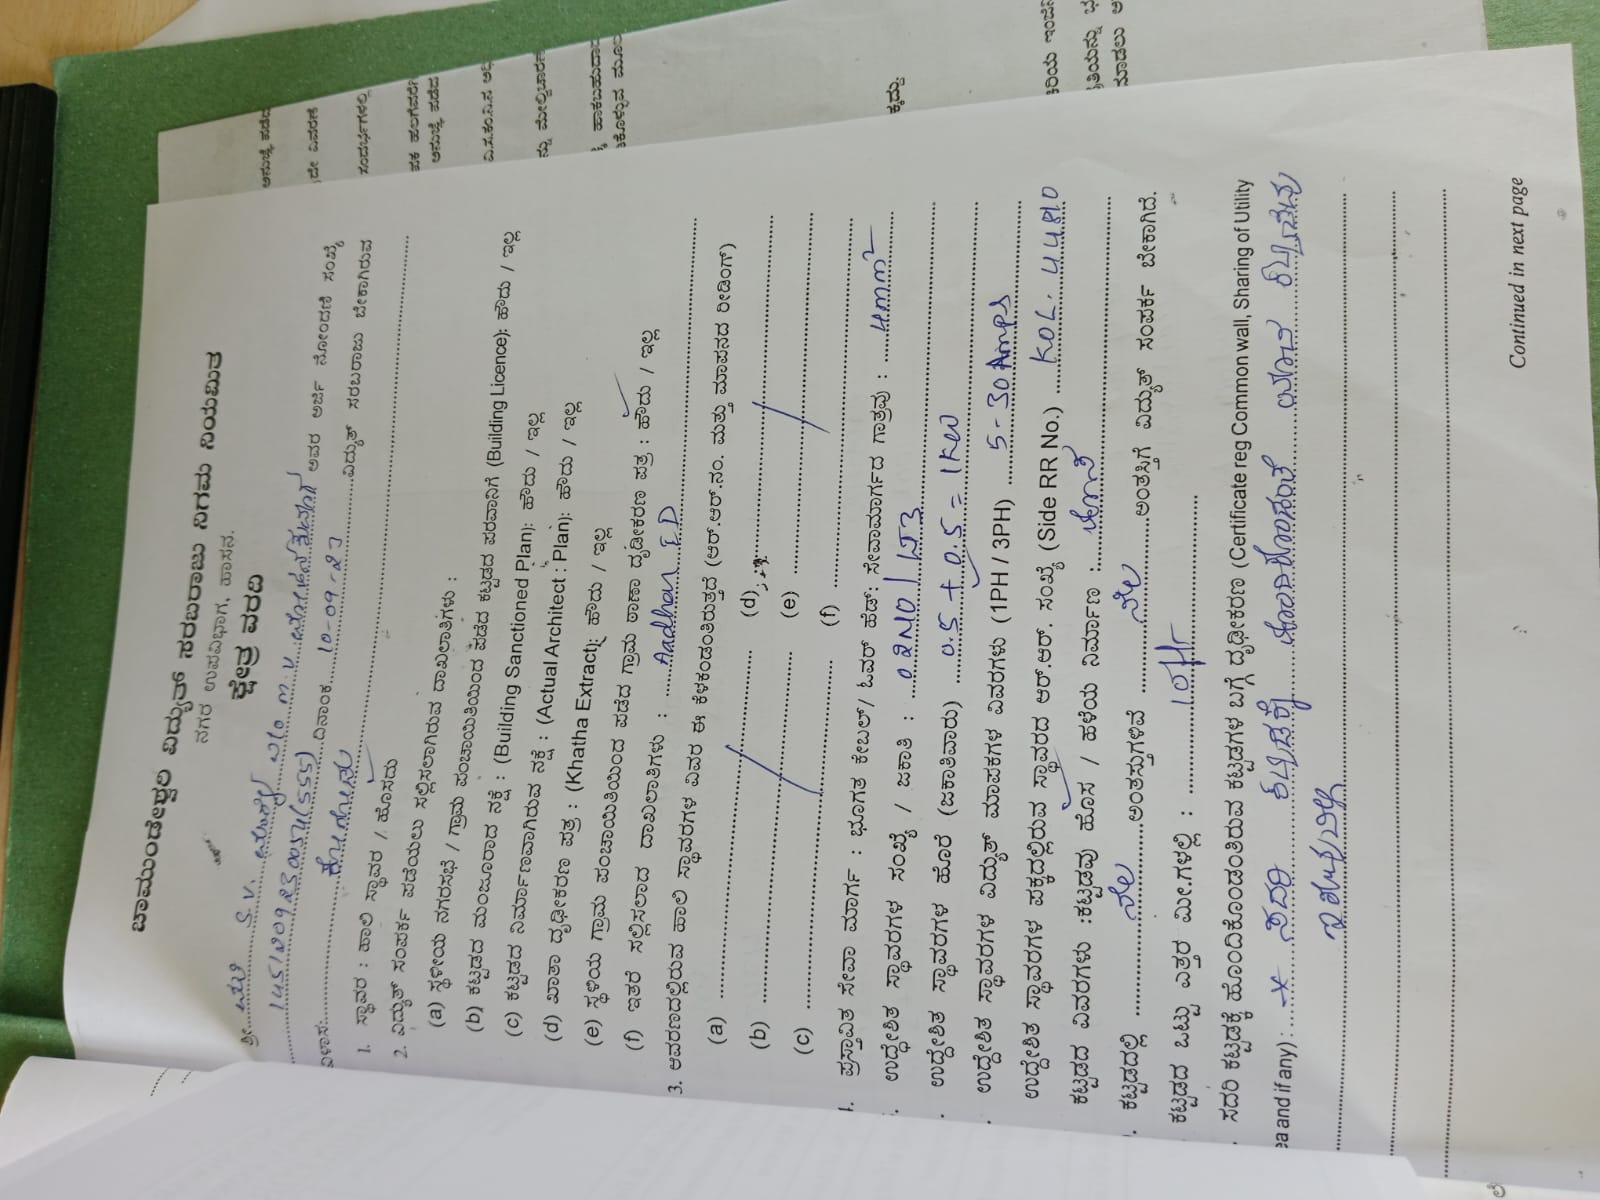 ಚಾಮುಂಡೇಶ್ವರಿ ವಿದ್ಯುತ್ ಸರಬರಾಜು ನಿಗಮ ನಿಯಮಿತ
ನಗರ ಉಪವಿಭಾಗ, ಹಾಸನ.
ಕ್ಷೇತ್ರ ವರದಿ
ಶ್ರೀ. S.V. ಅವರ ಅರ್ಜಿ ನೋಂದಣಿ ಸಂಖ್ಯೆ
ದಿನಾಂಕ 10-09-23 ವಿದ್ಯುತ್ ಸರಬರಾಜು ಬೇಕಾಗಿರುವ
ವಿಳಾಸ:
1. ಸ್ಥಾವರ : ಹಾಲಿ ಸ್ಥಾವರ / ಹೊಸದು
2. ವಿದ್ಯುತ್ ಸಂಪರ್ಕ ಪಡೆಯಲು ಸಲ್ಲಿಸಲಾಗಿರುವ ದಾಖಲಾತಿಗಳು :
(a) ಸ್ಥಳೀಯ ನಗರಸಭೆ / ಗ್ರಾಮ ಪಂಚಾಯಿತಿಯಿಂದ ಪಡೆದ ಕಟ್ಟಡದ ಪರವಾನಿಗೆ (Building Licence): ಹೌದು / ಇಲ್ಲ
(b) ಕಟ್ಟಡದ ಮಂಜೂರಾದ ನಕ್ಷೆ : (Building Sanctioned Plan): ಹೌದು / ಇಲ್ಲ
(c) ಕಟ್ಟಡದ ನಿರ್ಮಾಣವಾಗಿರುವ ನಕ್ಷೆ : (Actual Architect : Plan): ಹೌದು / ಇಲ್ಲ
(d) ಖಾತಾ ದೃಢೀಕರಣ ಪತ್ರ : (Khatha Extract): ಹೌದು / ಇಲ್ಲ
(e) ಸ್ಥಳಿಯ ಗ್ರಾಮ ಪಂಚಾಯಿತಿಯಿಂದ ಪಡೆದ ಗ್ರಾಮ ಠಾಣಾ ದೃಢೀಕರಣ ಪತ್ರ : ಹೌದು / ಇಲ್ಲ
(f) ಇತರೆ ಸಲ್ಲಿಸಲಾದ ದಾಖಲಾತಿಗಳು : Aadhar ID
3. ಆವರಣದಲ್ಲಿರುವ ಹಾಲಿ ಸ್ಥಾವರಗಳ ವಿವರ ಈ ಕೆಳಕಂಡಂತಿರುತ್ತದೆ (ಆರ್.ಆರ್.ನಂ. ಮತ್ತು ಮಾಪನದ ರೀಡಿಂಗ್)
(a) (d)
(b) (e)
(c) (f)
ಪ್ರಸ್ತಾವಿತ ಸೇವಾ ಮಾರ್ಗ : ಭೂಗತ ಕೇಬಲ್/ ಓವರ್ ಹೆಡ್: ಸೇವಾಮಾರ್ಗದ ಗಾತ್ರವು : 4mm²
ಉದ್ದೇಶಿತ ಸ್ಥಾವರಗಳ ಸಂಖ್ಯೆ / ಜಕಾತಿ : 02NO/LT3
ಉದ್ದೇಶಿತ ಸ್ಥಾವರಗಳ ಹೊರೆ (ಜಕಾತಿವಾರು) 0.5 + 0.5 = 1KW
ಉದ್ದೇಶಿತ ಸ್ಥಾವರಗಳ ವಿದ್ಯುತ್ ಮಾಪಕಗಳ ವಿವರಗಳು (1PH / 3PH) 5-30 Amps
ಉದ್ದೇಶಿತ ಸ್ಥಾವರಗಳ ಪಕ್ಕದಲ್ಲಿರುವ ಸ್ಥಾವರದ ಆರ್.ಆರ್. ಸಂಖ್ಯೆ (Side RR No.)
ಕಟ್ಟಡದ ವಿವರಗಳು :ಕಟ್ಟಡವು ಹೊಸ / ಹಳೆಯ ನಿರ್ಮಾಣ :
ಕಟ್ಟಡದಲ್ಲಿ ನೆಲ ಅಂತಸ್ತುಗಳಿವೆ ನೆಲ ಅಂತಸ್ತಿಗೆ ವಿದ್ಯುತ್ ಸಂಪರ್ಕ ಬೇಕಾಗಿದೆ.
ಕಟ್ಟಡದ ಒಟ್ಟು ಎತ್ತರ ಮೀ.ಗಳಲ್ಲಿ :
ಸದರಿ ಕಟ್ಟಡಕ್ಕೆ ಹೊಂದಿಕೊಂಡಂತಿರುವ ಕಟ್ಟಡಗಳ ಬಗ್ಗೆ ದೃಢೀಕರಣ (Certificate reg Common wall, Sharing of Utility
ea and if any) : * ಸದರಿ ಕಟ್ಟಡಕ್ಕೆ ಹೊಂದಿಕೊಂಡಂತೆ ಯಾವ ಕಟ್ಟಡವು
ಇರುವುದಿಲ್ಲ
Continued in next page